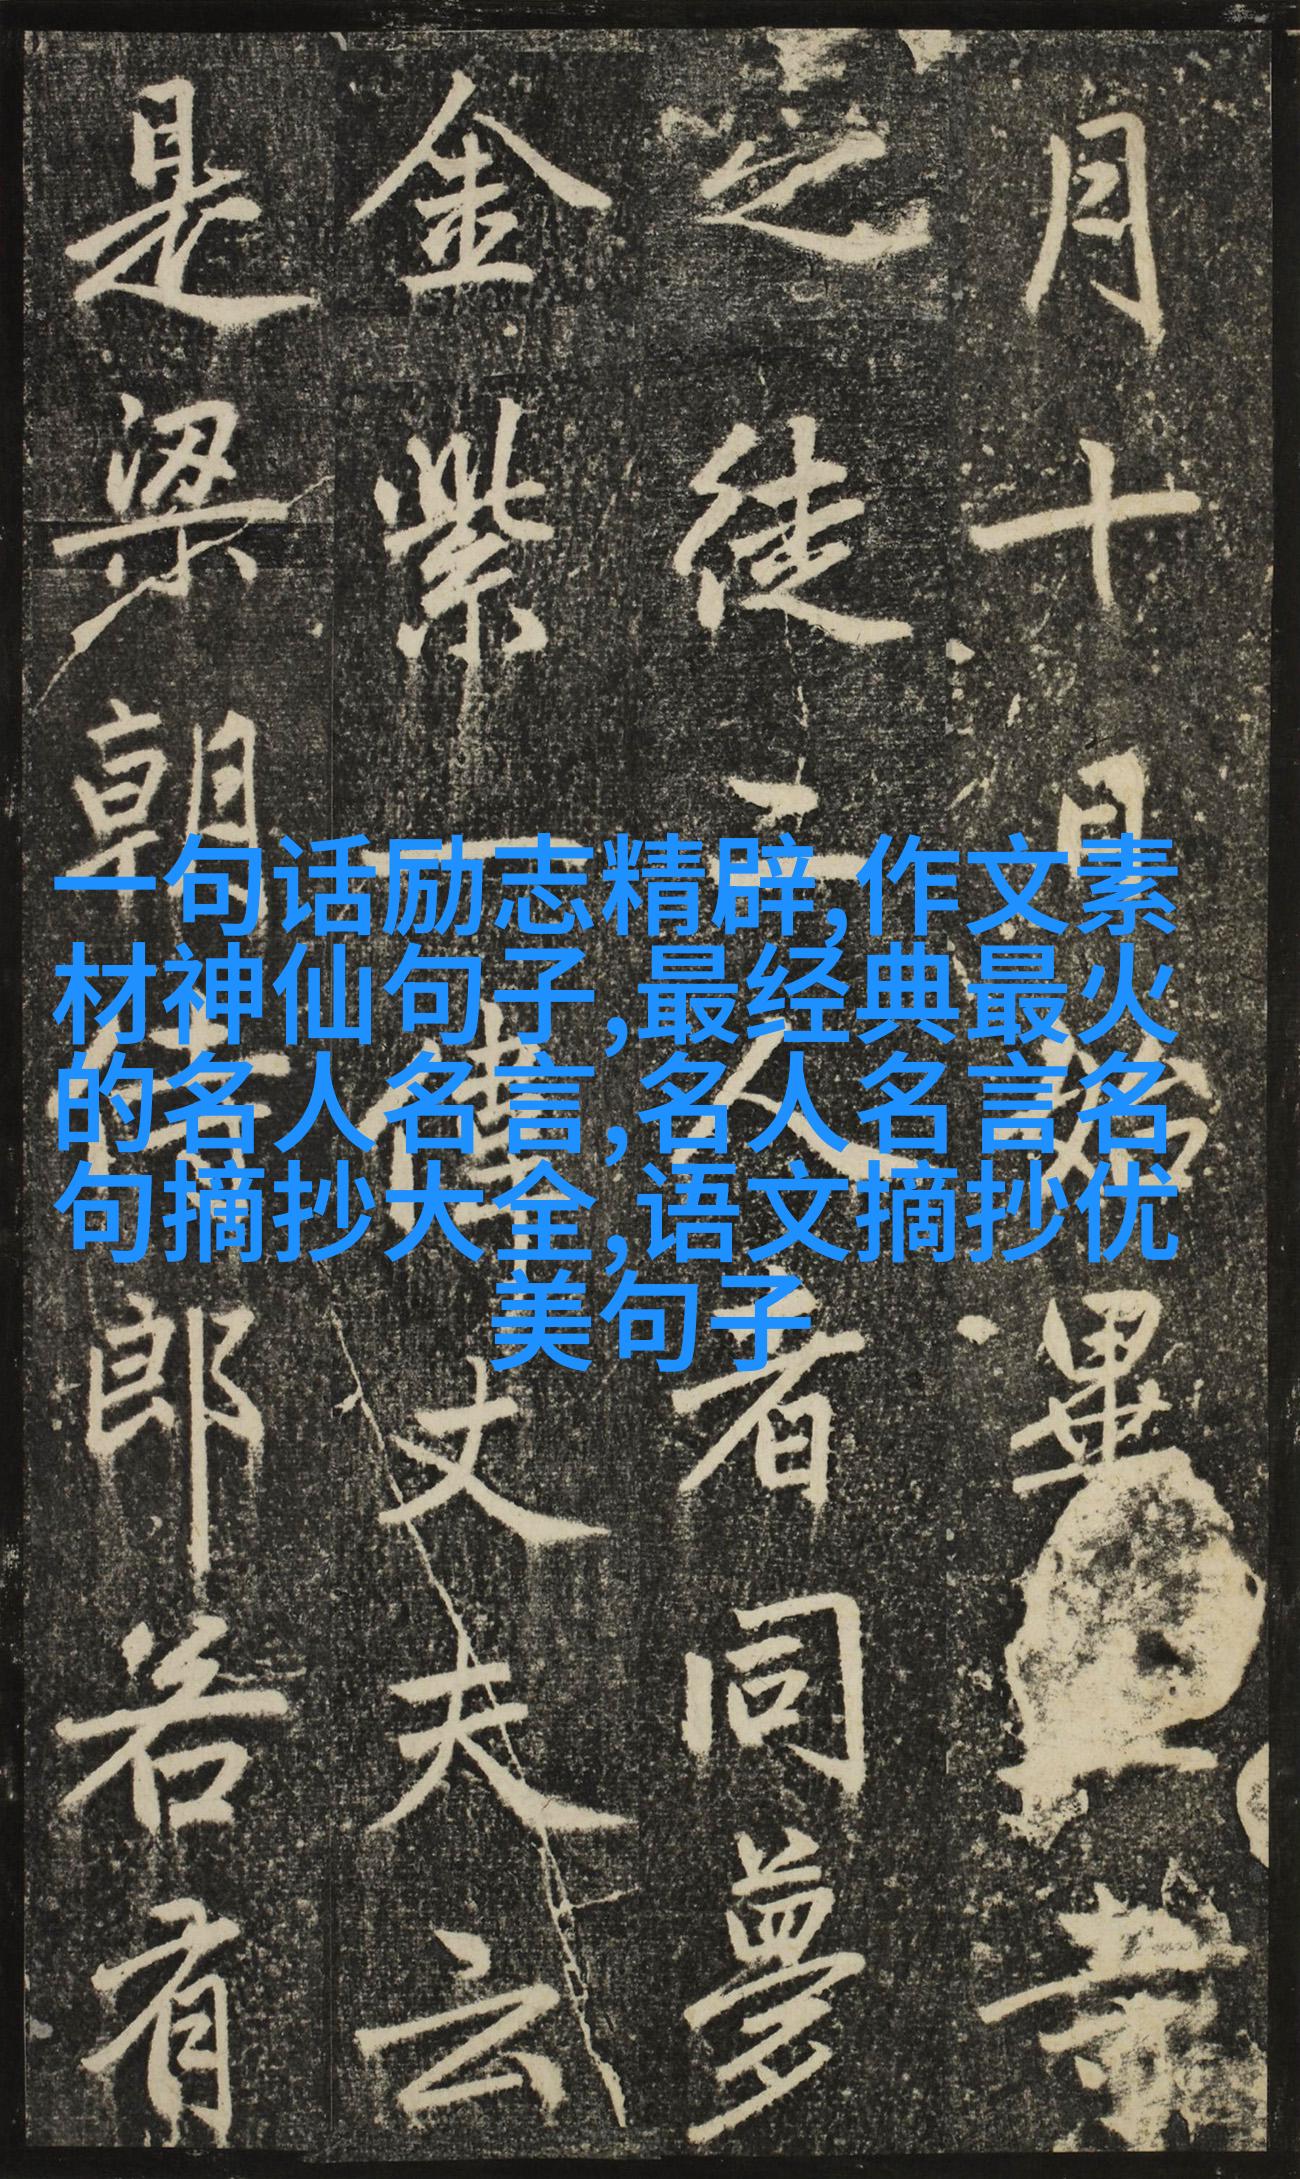 月十月畢
之徒二人者同夢
金紫一偉丈夫云
是梁朝侍郎若有
一句话励志精辟,作文素
材神仙句子,最经典最火
的名人名言,名人名言名
句摘抄大全,语文摘抄优
美句子